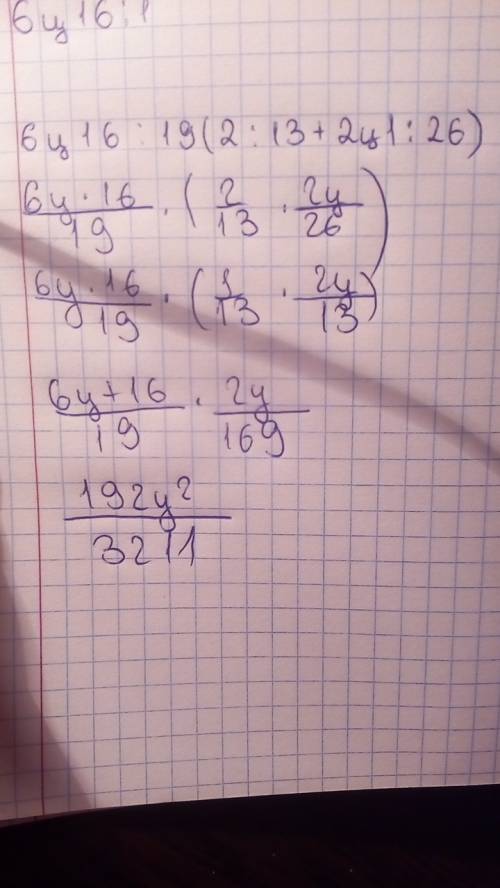 6ц 16 : 1
6ц 16 : 19(2 : 13 + 2ц1 : 26)
6ц · 16 / 19 · (2/13 · 2ц/26)
6ц · 16 / 19 · (1/13 · 2ц/13)
6ц + 16 / 19 · 2ц/169
192ц² / 3211